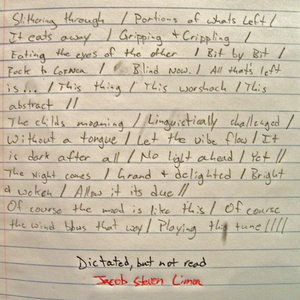 Slithering through / Portions of whats left /
It eats away / Gripping & Crippling /
Eating the eyes of the other / Bit by Bit /
Back to Cornea / Blind Now. / All thats left
is ... / This thing / This worshach / This
abstract //
The childs moaning / Linguistically challenged /
Without a tongue / Let the vibe flow / It
is dark after all / No light ahead / Yet //
The night comes / Grand & delighted / Bright
& woken / Allow it its due //
Of course the mood is like this / Of course
the wind blows that way / Playing this tune ////
Dictated, but not read
Jacob Steven Limon